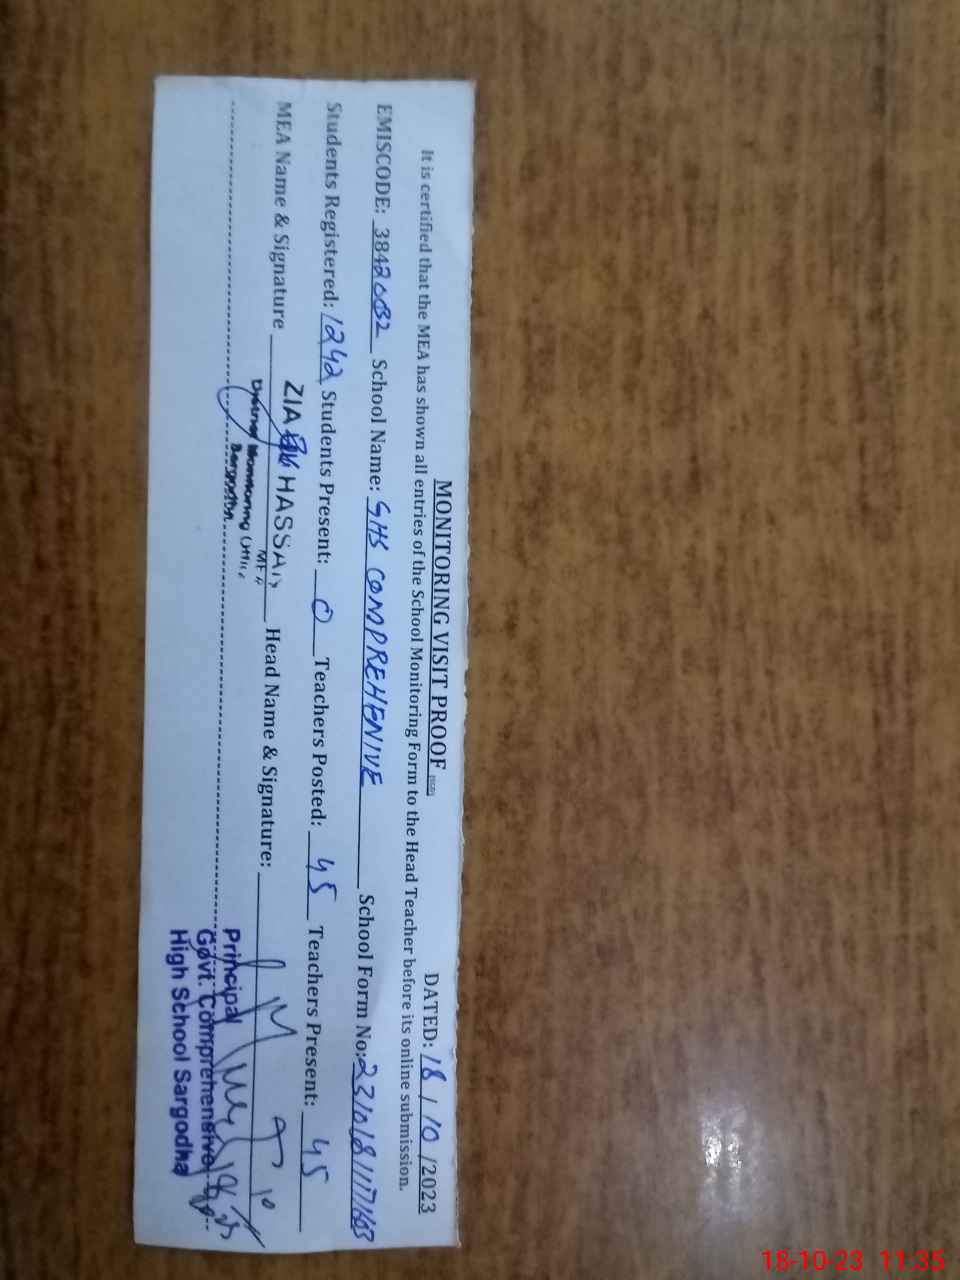 MONITORING VISIT PROOF
DATED: 18 / 10 /2023
It is certified that the MEA has shown all entries of the School Monitoring Form to the Head Teacher before its online submission.
EMISCODE: 38420082 School Name: GHS COMPREHENIVE School Form No:
Students Registered: 1242 Students Present: 0 Teachers Posted: 45 Teachers Present: 45
MEA Name & Signature ZIA HASSAN Head Name & Signature:
MEA
District Monitoring Office
Sargodha
Principal
Govt. Comprehensive
High School Sargodha
18-10-23 11:35